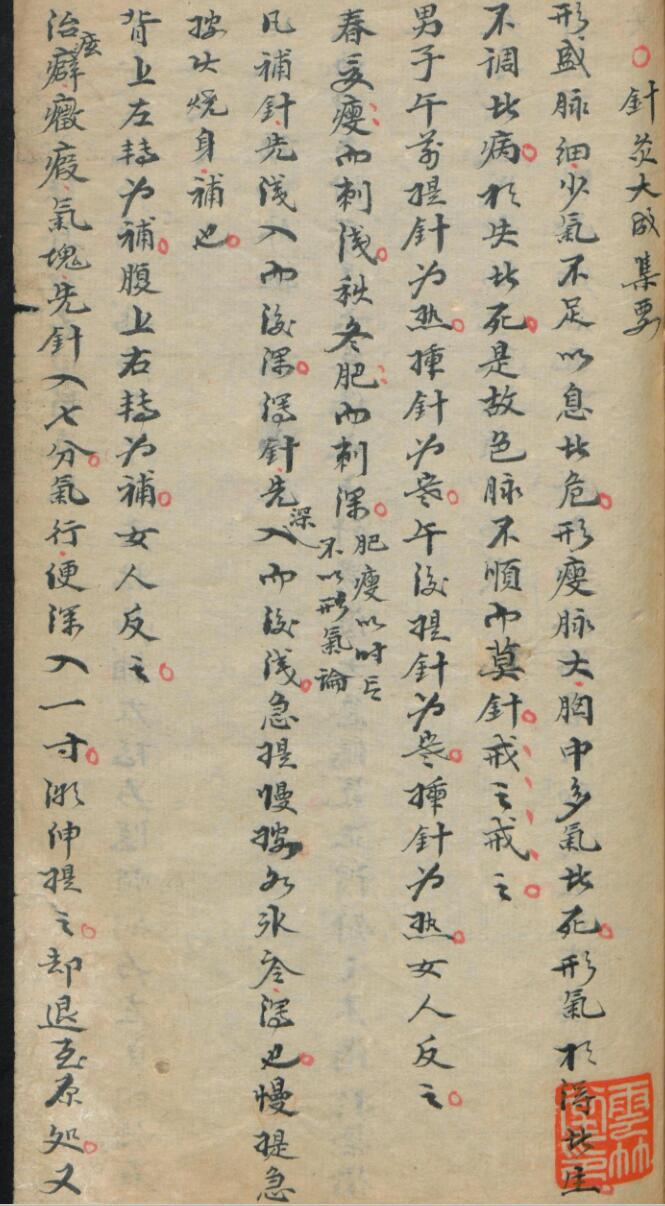 針灸大成集要
形盛脉細少氣不足以息者危形瘦脉大胸中多氣者死形氣相得者生
不調者病相失者死是故色脉不順而莫針戒之戒之
男子午前提針为热揷針为寒午後提針为寒揷針为热女人反之
春夏瘦而刺浅秋冬肥而刺深肥瘦以时言不以形氣論
凡補針先浅入而後深瀉針先深入而後浅急提慢按如氷冷瀉也慢提急
按火燒身補也
背上左轉为補腹上右轉为補女人反之
治痃癖癥瘕氣塊先針入七分氣行便深入一寸漸伸提之却退至原処又